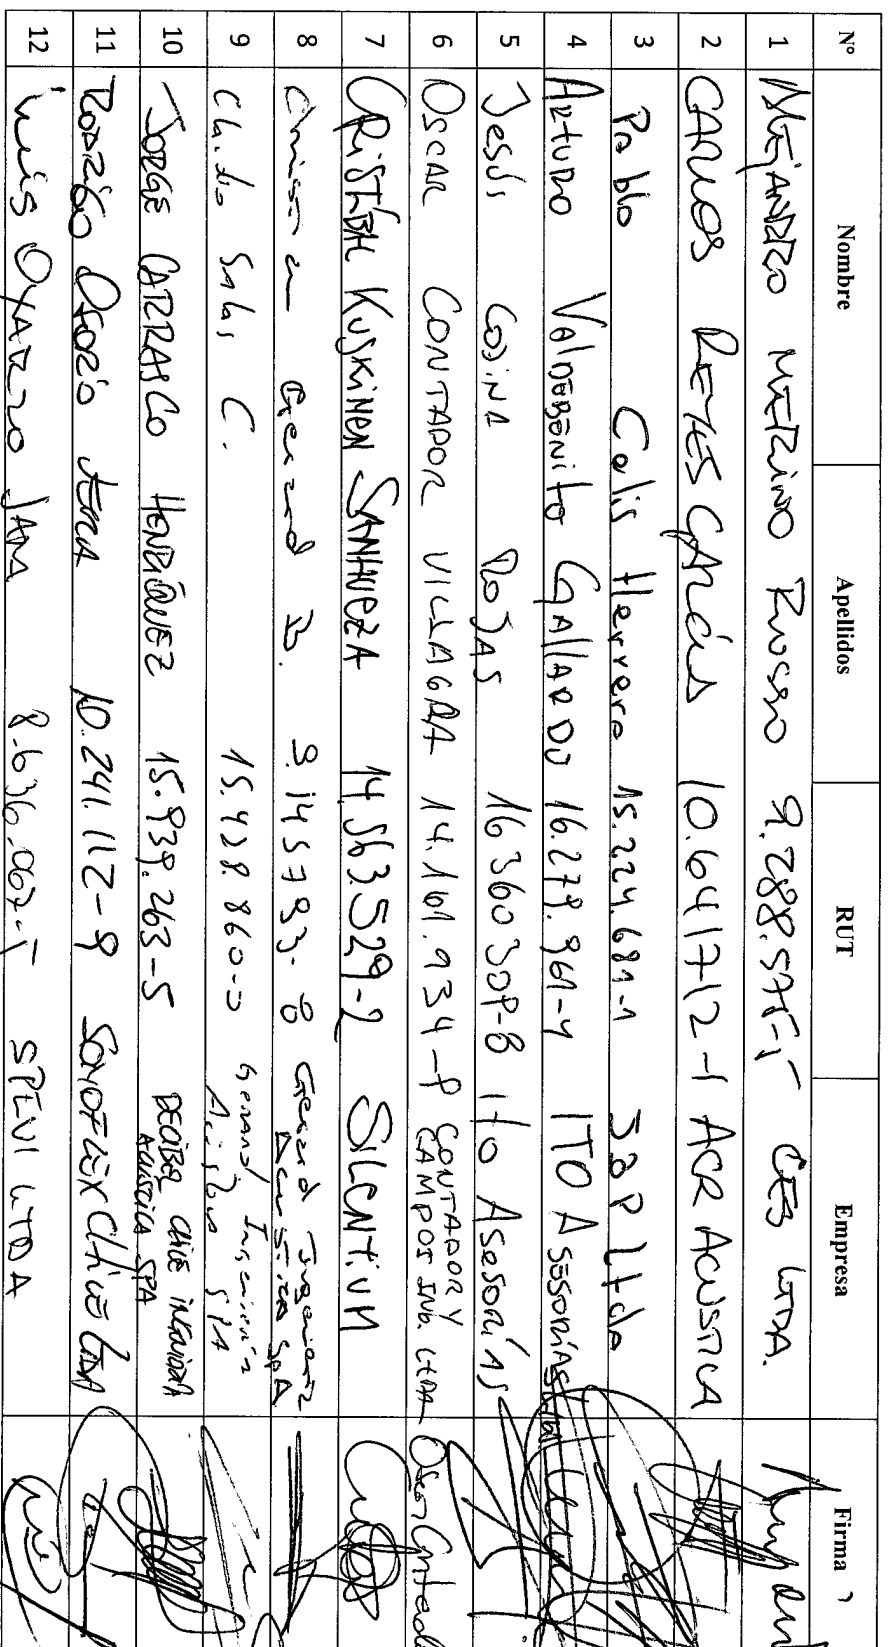 Nº Nombre Apellidos RUT Empresa Firma
1 Alejandro Merino Russo 9.288.575-5 CEB LTDA.
2 Carlos Reyes 10.641712-1 ACR ACUSTICA
3 Pablo Colis Herrera 15.224.681-1 LtdA
4 Arturo Valdebenito GAllARDO 16.279.961-4 ITO Asesorías
5 Jesús Rojas Ito Asesorías
6 Oscar CONTADOR VILLAGRA 14.161.934-9 CONTADOR Y
CAMPOS ING. LTDA
7 CRiSTÓBAL KUSKiNEN SANHUEZA 14.563.529-2 SiLENTiUM
8 Christian Gerard B. 9.145793-8 Gerard Ingeniería
Acústica SpA
9 Claudio Salas C. 15.428.860-0 Gerard Ingeniería
Acústica SPA
10 JORGE CARRASCO HENRÍQUEZ 15.939.263-5 DECIBEL CHILE INGENIERIA
ACUSTICA SPA
11 Rodrigo Osorio 10.241.112-9 SONOFLEX CHILE LTDA
12 Luis OYARZO JARA SPEVI LTDA